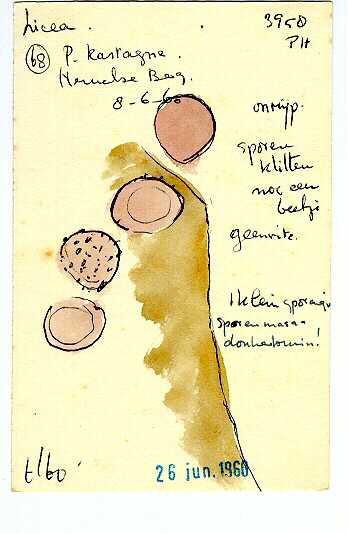 Licea.
3950
PH
68 P. Kastagne.
Heruelse Beg.
8-6-60
onrijp.
sporen
klitten
noc een
beetje
1 klein sporangi
sporenmassa
donkerbruin!
t/60
26 jun. 1960